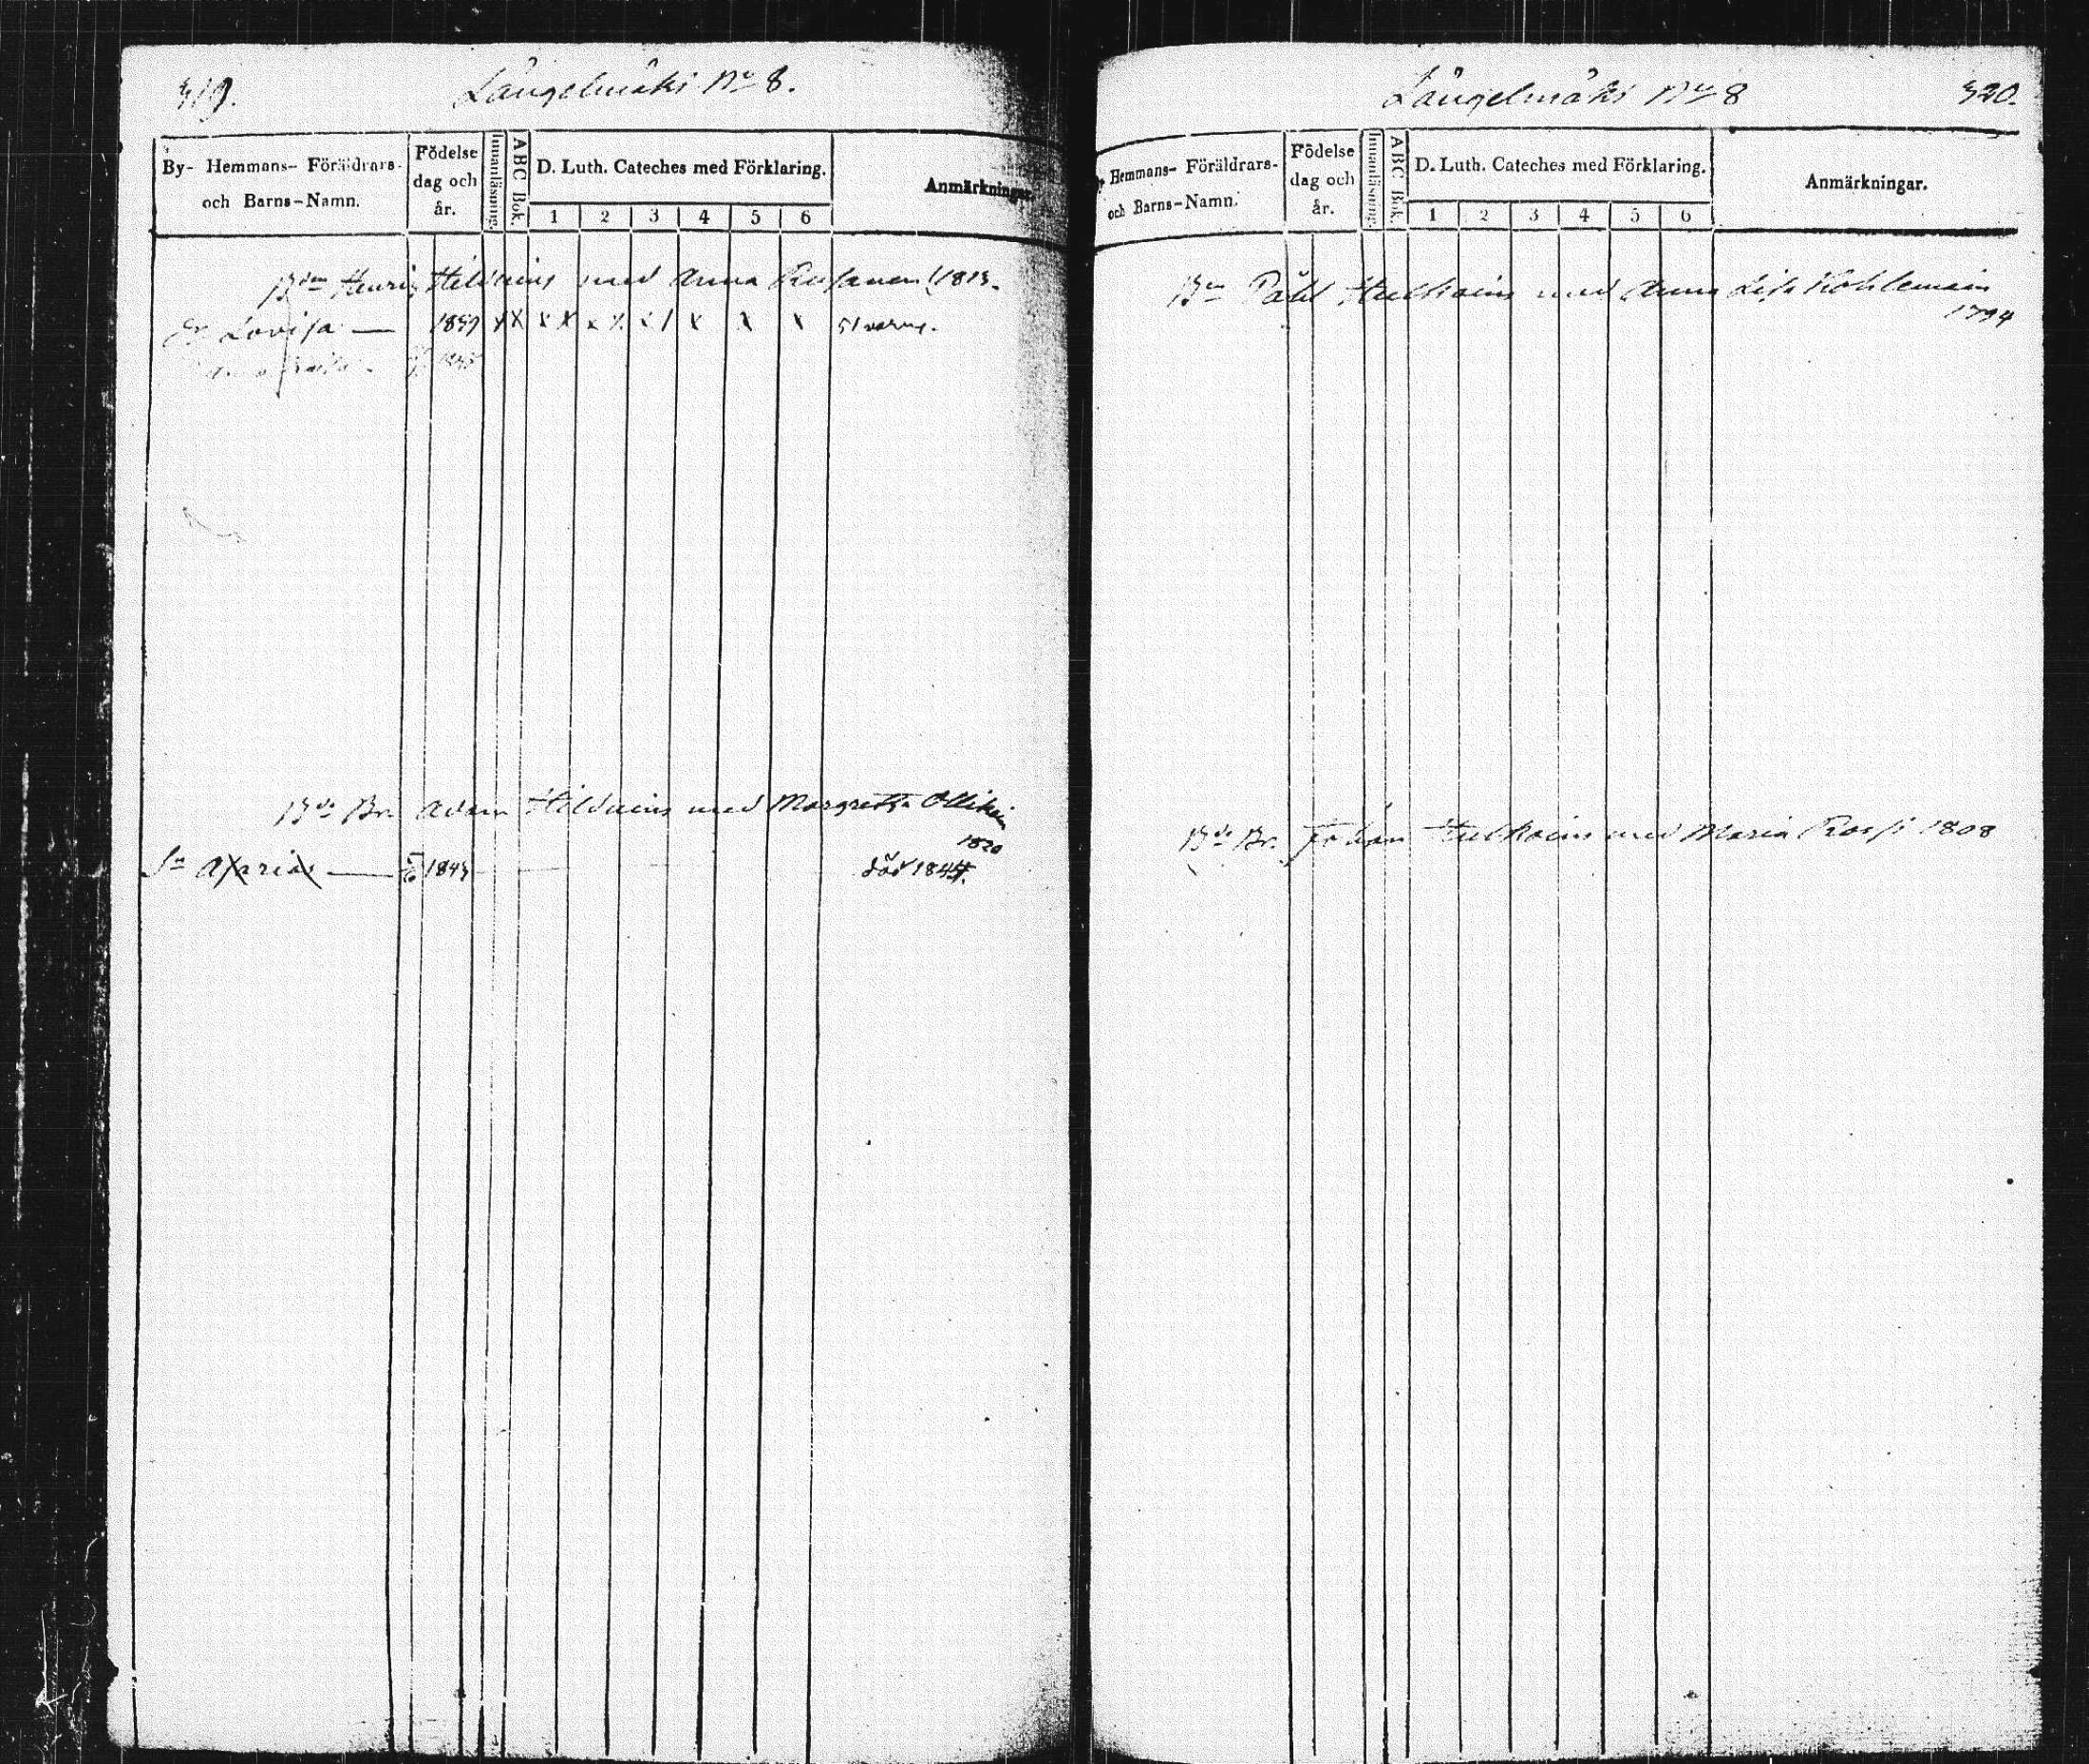 319.
Långelmäki No 8.
By- Hemmans- Föräldrars-
och Barns-Namn.
Födelse
dag och
år.
Innanläsning.
ABC Bok.
D. Luth. Cateches med Förklaring.
1 2 3 4 5 6
Anmärkningar.
Henric med Anna 1813.
Dr Lovisa — 1839 x x x x x x x x x x
1845
Bde Br. Adam med Margretha Ollikain
1820
Sn Axarias — 1843 död 1844.
Långelmäki No 8
320.
Hemmans- Föräldrars-
och Barns-Namn.
Födelse
dag och
år.
Innanläsning.
ABC Bok.
D. Luth. Cateches med Förklaring.
1 2 3 4 5 6
Anmärkningar.
Bn Påhl Hulkoins med Anna Lisa Kohlemain
1794
Bde Br. Johan Hulkoins med Maria Rossi 1808